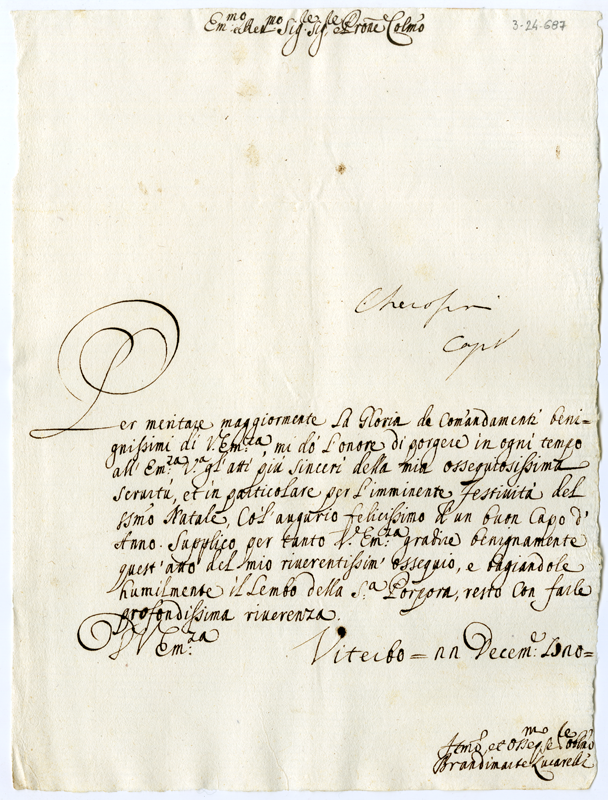 Em.mo e Rev.mo Sig.re Sig.re e Prone Colmo
3-24-687
Capr
Per meritare maggiormente la Gloria de Com'andamenti beni=
gnissimi di V. Em.za mi do L'onore di porgere in ogni tempo
all' Em.za V.ra gl'ati più sinceri della mia ossequiosissima
servitù, et in particolare per l'imminente festività del
ssmo Natale, Co'l augurio felicissimo d'un buon Capo d'
Anno. Supplico per tanto V. Em.za gradire benignamente
quest' atto del mio riverentissim' ossequio, e bagiandole
humilmente il Lembo della S.a Porpora, resto con farle
profondissima riverenza.
D V Em.za
Viterbo = 22 Decem.e
et Oss.mo
Brandimarte Lucarelli